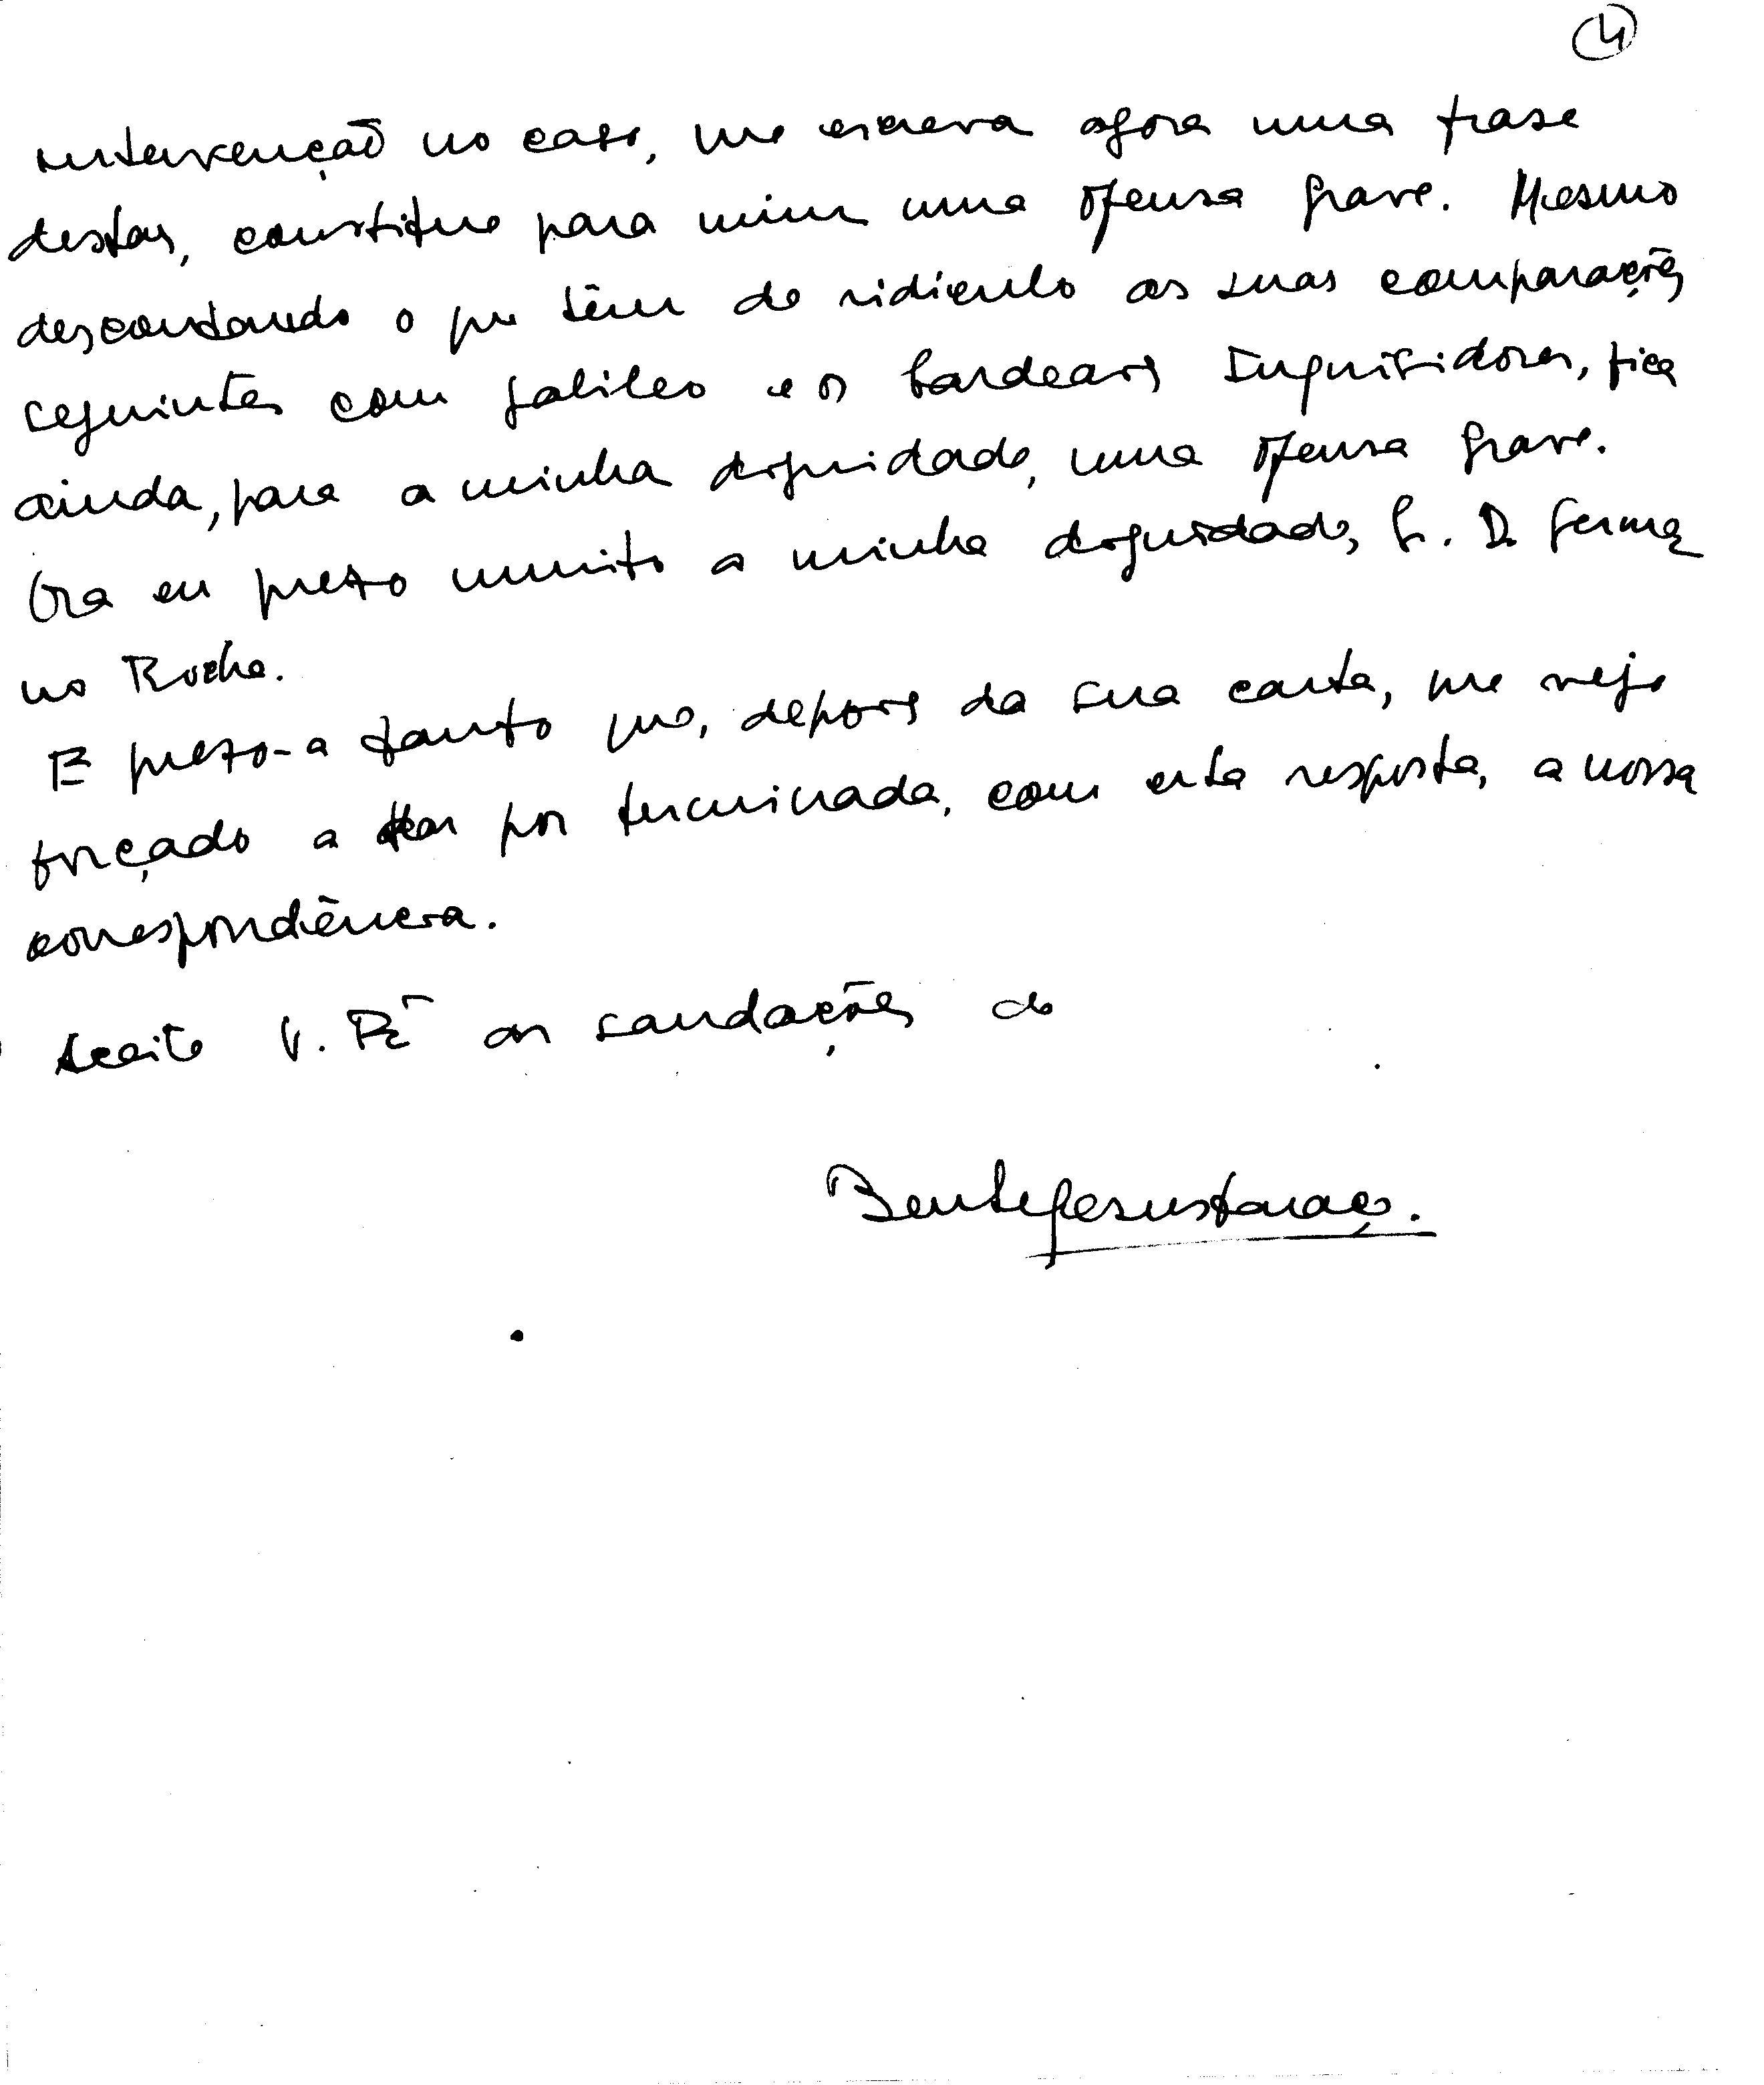 4
intervenção no caso, me escreva agora uma frase
destas, constitue para mim uma ofensa grave. Mesmo
descontando o que têm de ridículo as suas comparações
seguintes com Galileo e os Cardeais Inquisidores, fica
ainda, para a minha dignidade, uma ofensa grave.
Ora eu prezo muito a minha dignidade, Sr. D. Germa
no Rocha.
E prezo-a tanto que, depois da sua carta, me vejo
forçado a dar por terminada, com esta resposta, a nossa
correspondência.
Aceite V. Rª as saudações de
Bento de Jesus Caraça.